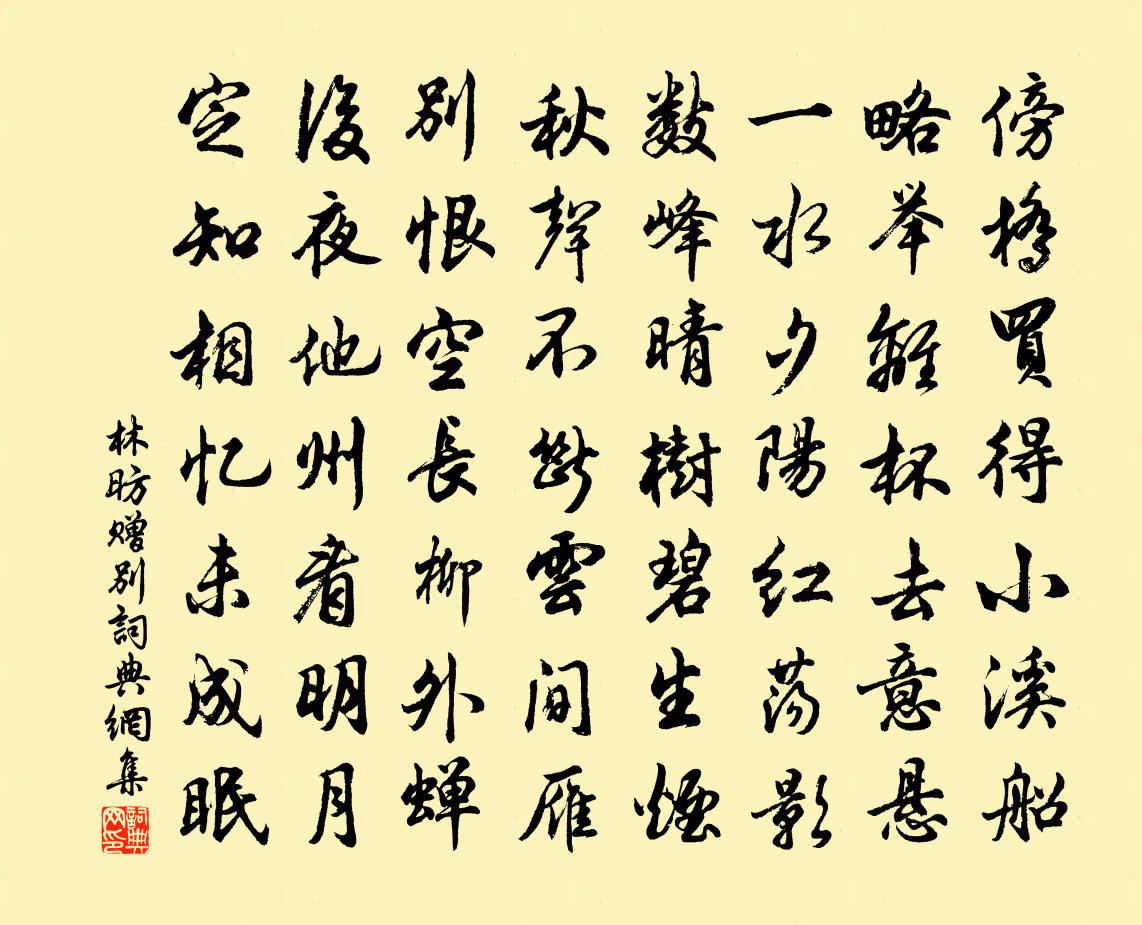 傍橋買得小溪船
略举離杯去意悬
一水夕陽红荡影
數峰晴樹碧生煙
秋聲不斷雲间雁
別恨空長柳外蝉
後夜他州看明月
定知相忆未成眠
林昉赠别詞典網集
詞典網印